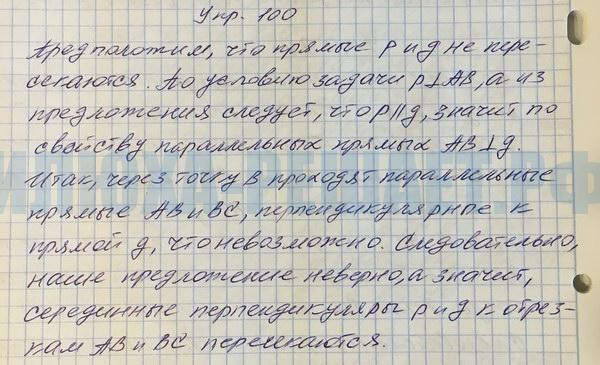 Упр. 100
Предположим, что прямые р и g не пере-
секаются. По условию задачи р⊥АВ, а из
предложения следует, что р||g, значит по
свойству параллельных прямых АВ⊥g.
Итак, через точку В проходят параллельные
прямые АВ и ВС, перпендикулярные к
прямой g, что невозможно. Следовательно,
наше предложение неверно, а значит,
серединные перпендикуляры р и g к отрез-
кам АВ и ВС пересекаются.